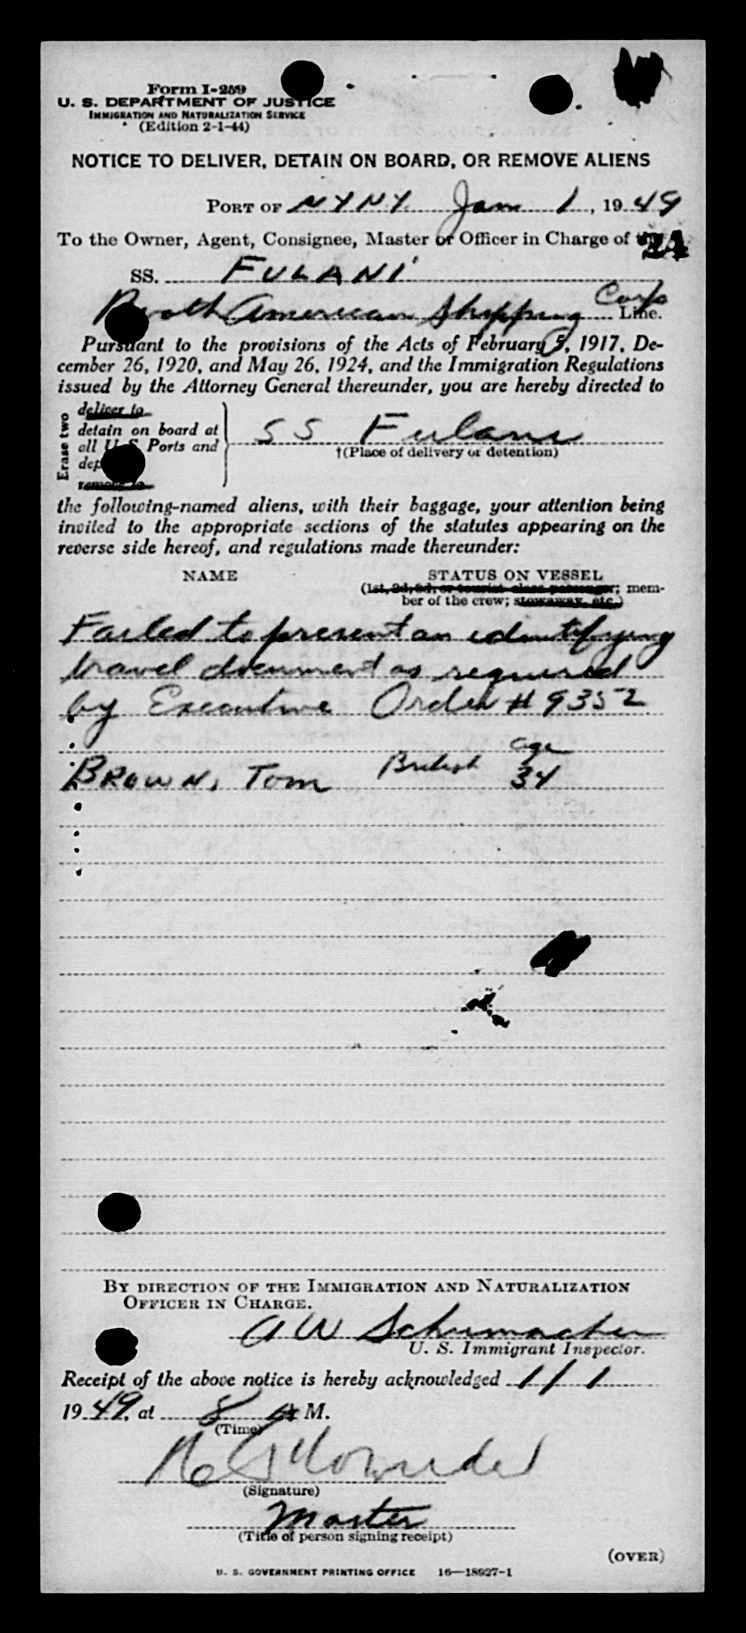 Form I-259
U. S. DEPARTMENT OF JUSTICE
IMMIGRATION AND NATURALIZATION SERVICE
(Edition 2-1-44)
NOTICE TO DELIVER, DETAIN ON BOARD, OR REMOVE ALIENS
PORT OF NYNY. Jan 1, 1949
To the Owner, Agent, Consignee, Master or Officer in Charge of the
21
SS. FULANI
Booth American Shipping Corp Line.
Pursuant to the provisions of the Acts of February 5, 1917, De-
cember 26, 1920, and May 26, 1924, and the Immigration Regulations
issued by the Attorney General thereunder, you are hereby directed to
Erase two
deliver to
detain on board at
all U.S. Ports and
SS Fulani
†(Place of delivery or detention)
remove to
the following-named aliens, with their baggage, your attention being
invited to the appropriate sections of the statutes appearing on the
reverse side hereof, and regulations made thereunder:
NAME STATUS ON VESSEL
(1st, 2d, 3d, or tourist class passenger; mem-
ber of the crew; stowaway, etc.)
Failed to present an identifying
travel document as required
by Executive Order # 9352
BROWN, Tom British age 34
BY DIRECTION OF THE IMMIGRATION AND NATURALIZATION
OFFICER IN CHARGE.
A W Schumacher
U. S. Immigrant Inspector.
Receipt of the above notice is hereby acknowledged 1/1
1949, at 8 A M.
(Time)
(Signature)
Master
(Title of person signing receipt)
(OVER)
U. S. GOVERNMENT PRINTING OFFICE 16—18927-1